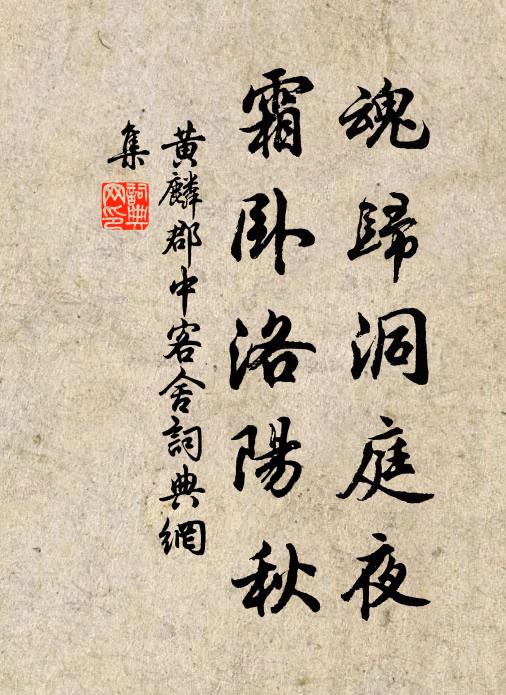 魂歸洞庭夜
霜臥洛陽秋
黃麟郡中客舍詞典網
集
詞典
网印